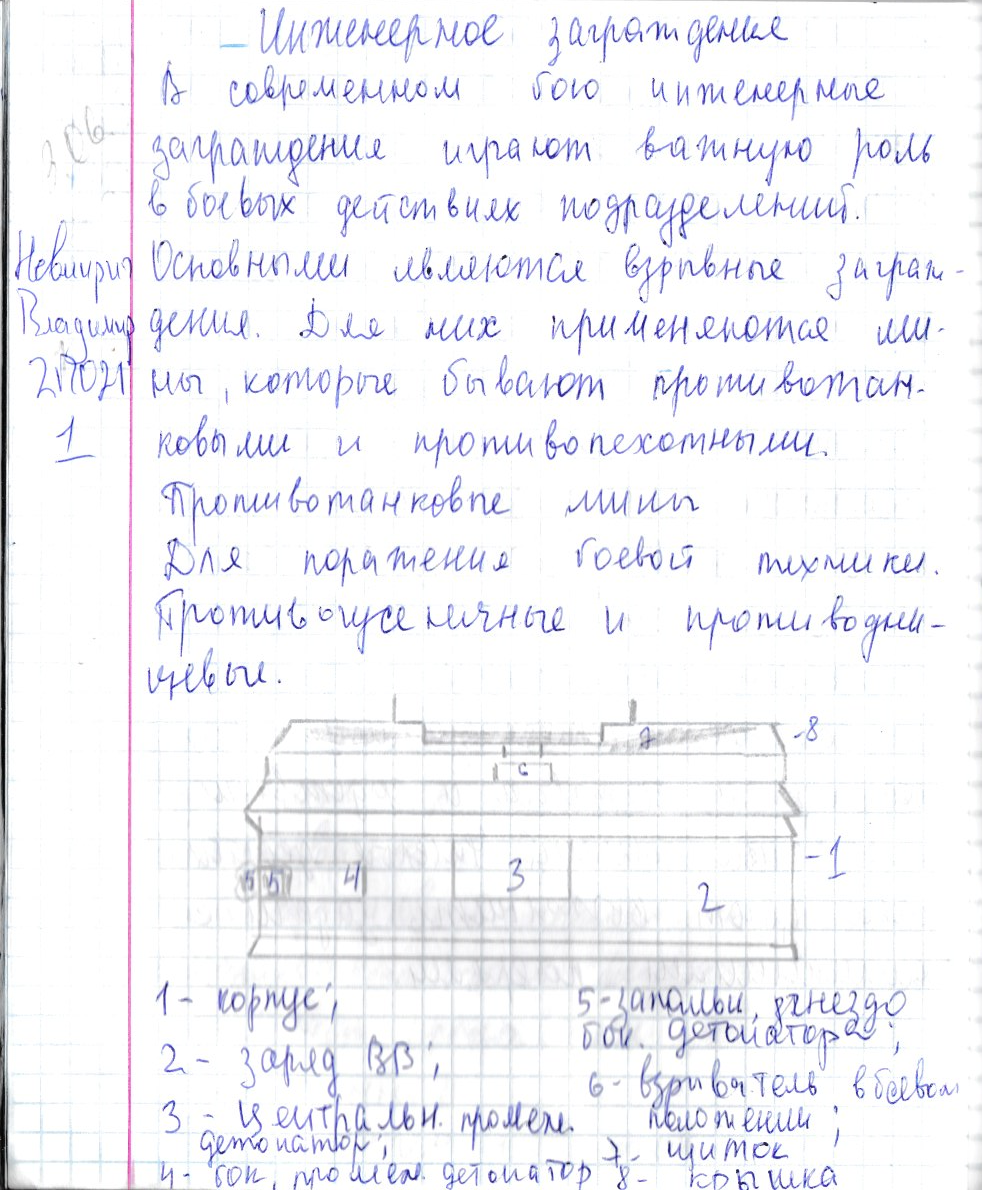 Инженерное заграждение
В современном бою инженерные
заграждения играют важную роль
в боевых действиях подразделений.
Основными являются взрывные заграж-
дения. Для них применяются ми-
ны, которые бывают противотан-
ковыми и противопехотными.
Противотанковые мины
Для поражения боевой техники.
Противогусеничные и противодни-
щевые.
Владимир
1
7
-8
6
-1
5 5 4 3 2
1 - корпус;
2 - заряд ВВ;
3 - централь­н. промеж.
детонатор;
4 - бок. промеж. детонатор
5 - запальн. гнездо
бок. детонатора;
6 - взрыватель в боевом
положении;
7 - щиток
8 - крышка